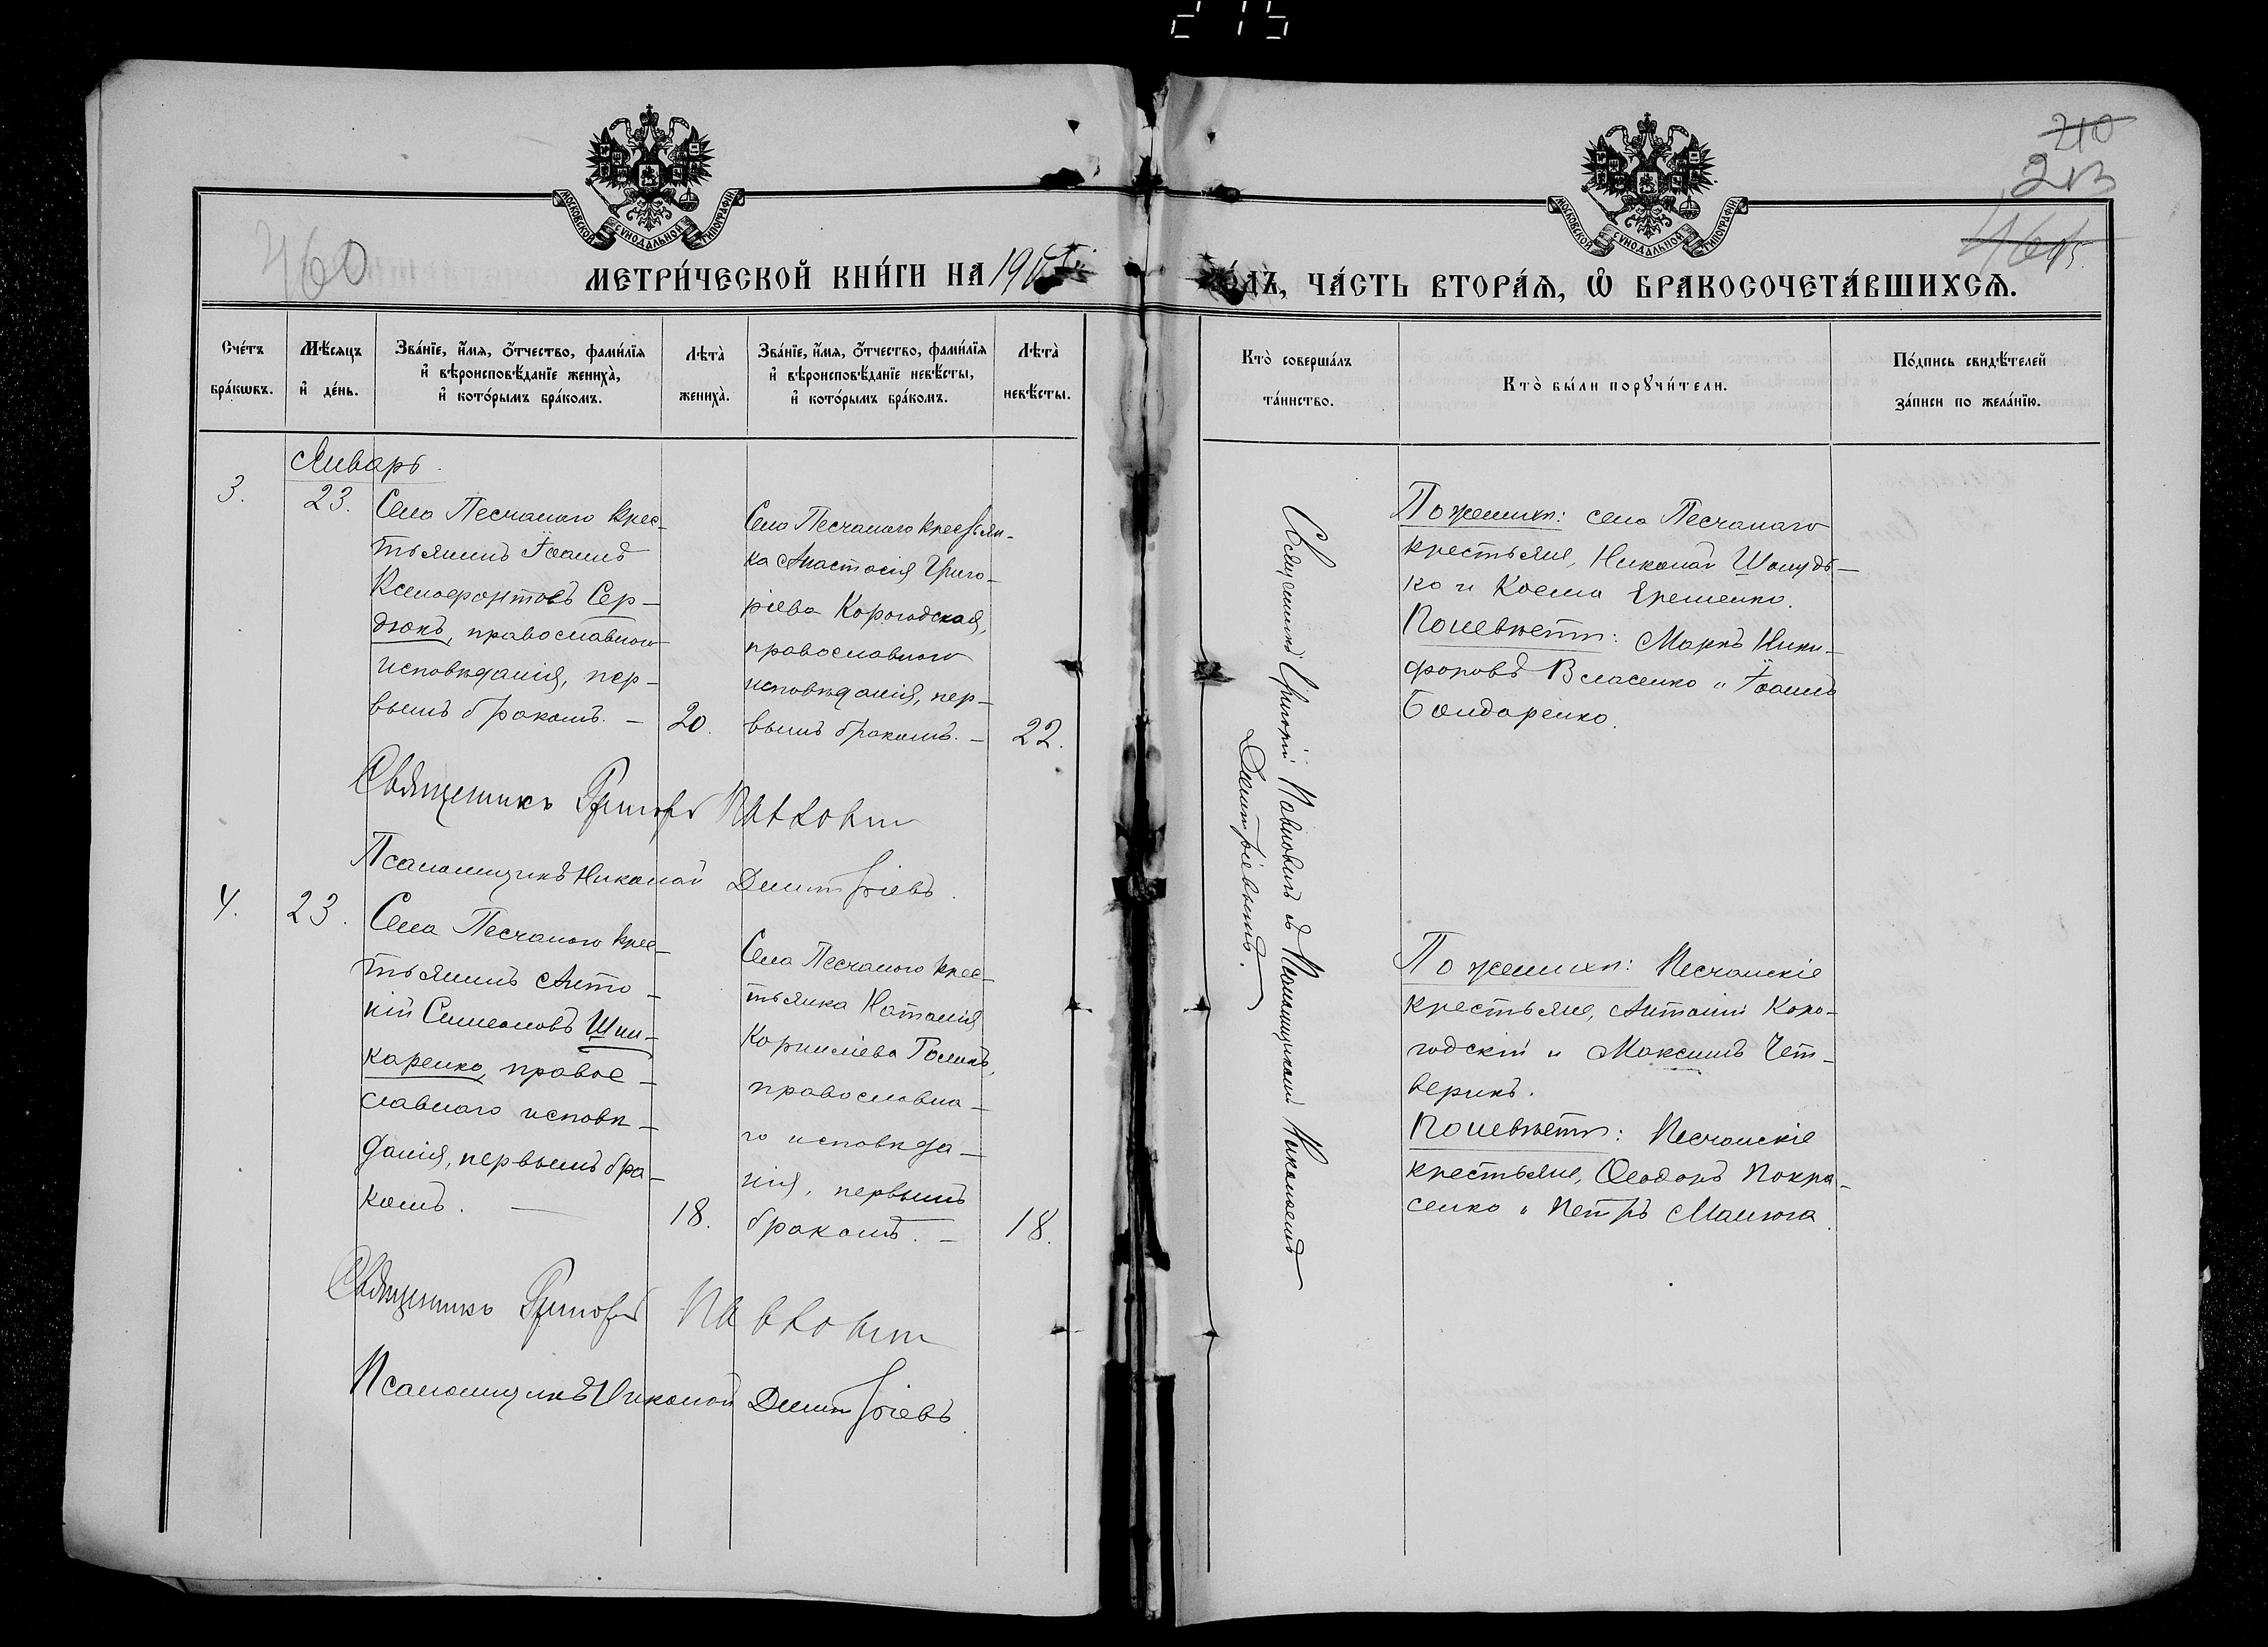 215
МОСКОВСКОЙ СѴНОДАЛЬНОЙ ТИПОГРАФІИ
МОСКОВСКОЙ СѴНОДАЛЬНОЙ ТИПОГРАФІИ
210
213
460
МЕТРИ́ЧЕСКОЙ КНИ́ГИ НА 19
ЧА́СТЬ ВТОРА́Ѧ, Ѽ БРАКОСОЧЕТА́ВШИХСѦ.
Сче́тъ бра́кѡвъ.
Мѣ́сяцъ и҆ де́нь.
Зва́нїе, и҆́мя, ѻ҆́тчество, фами́лїя и҆ вѣроисповѣ́данїе жениха̀, и҆ кото́рымъ бра́комъ.
Лѣта̀ жениха̀.
Зва́нїе, и҆́мя, ѻ҆́тчество, фами́лїя и҆ вѣроисповѣ́данїе невѣ́сты, и҆ кото́рымъ бра́комъ.
Лѣта̀ невѣ́сты.
Кто̀ соверша́лъ та́инство.
Кто̀ бы́ли порꙋчи́тели.
По́дпись свидѣ́телей за́писи по жела́нїю.
Январь.
3.
23.
Села Песчаного крес-
тьянинъ Іоаннъ
Ксенофонтовъ Сер-
дюкъ, православного
исповѣданія, пер-
вымъ бракомъ. —
20.
Села Песчаного крестьян-
ка Анастасія Григо-
ріева Корогодская,
православного
исповѣданія, пер-
вымъ бракомъ. —
22.
Священникъ Григорій Павловичъ и Псаломщикомъ Николаемъ
Димитріевымъ.
По женихѣ: села Песчанаго
крестьяне, Николай Шаудь-
ко и Косма Ерешенко.
По невѣстѣ: Маркъ Ники-
форовъ Власенко и Іоаннъ
Бондаренко.
Священникъ Григорій Павловичъ
Псаломщикъ Николай Димитріевъ.
4.
23.
Села Песчаного крес-
тьянинъ Анто-
ній Симеоновъ Шин-
каренко, правос-
лавного исповѣ-
данія, первымъ бра-
комъ. —
18.
Села Песчаного крес-
тьянка Наталія
Корниліева Голикъ,
православна-
го исповѣда-
нія, первымъ
бракомъ. —
18.
По женихѣ: Песчанскіе
крестьяне, Антоній Коро-
годскій и Максимъ Чет-
верикъ.
По невѣстѣ: Песчанскіе
крестьяне, Ѳеодоръ Покра-
сенко и Петръ Манюга.
Священникъ Григорій Павловичъ
Псаломщикъ Николай Димитріевъ.